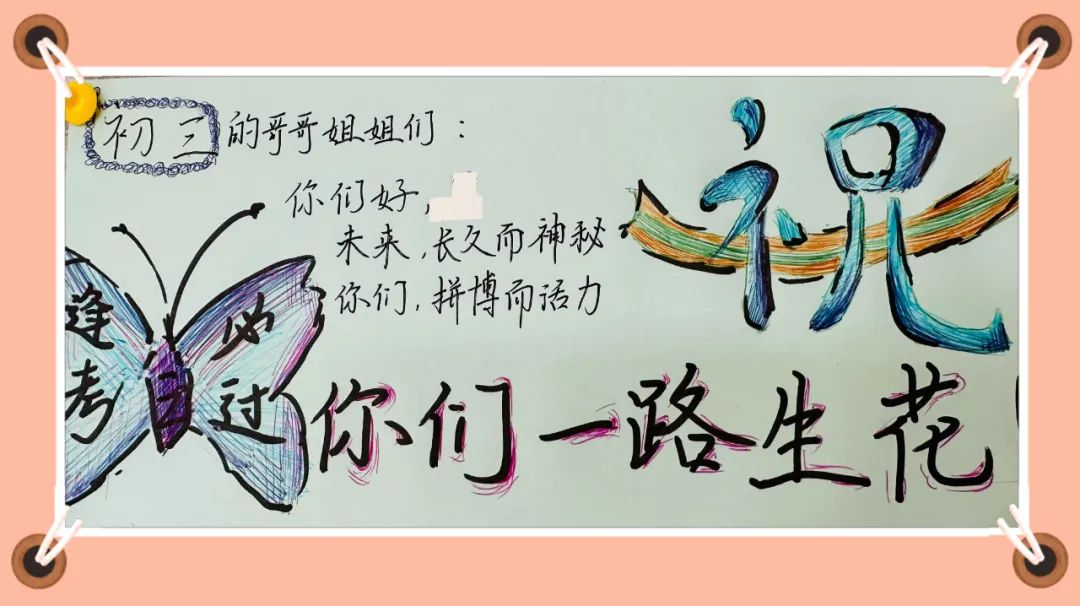 初三的哥哥姐姐们：
你们好,
未来,长久而神秘
你们,拼搏而活力
祝
你们一路生花
逢考
必过